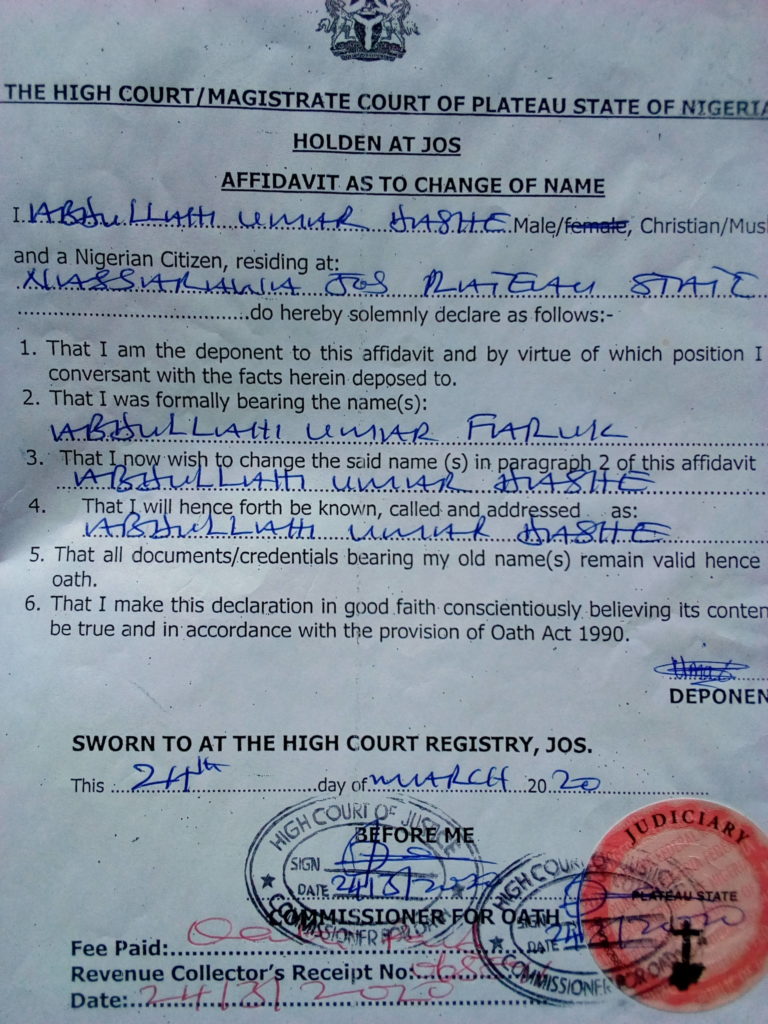 THE HIGH COURT/MAGISTRATE COURT OF PLATEAU STATE OF NIGERIA
HOLDEN AT JOS
AFFIDAVIT AS TO CHANGE OF NAME
I. ABDULLAHI UMAR DASHE Male/female, Christian/Mus
and a Nigerian Citizen, residing at:
NASSARAWA JOS PLATEAU STATE
do hereby solemnly declare as follows:-
1. That I am the deponent to this affidavit and by virtue of which position I
conversant with the facts herein deposed to.
2. That I was formally bearing the name(s):
ABDULLAHI UMAR FARUK
3. That I now wish to change the said name (s) in paragraph 2 of this affidavit
ABDULLAHI UMAR DASHE
4. That I will hence forth be known, called and addressed as:
ABDULLAHI UMAR DASHE
5. That all documents/credentials bearing my old name(s) remain valid hence
oath.
6. That I make this declaration in good faith conscientiously believing its conten
be true and in accordance with the provision of Oath Act 1990.
DEPONEN
SWORN TO AT THE HIGH COURT REGISTRY, JOS.
This 24th day of MARCH 2020
HIGH COURT OF JUSTICE
BEFORE ME
SIGN
DATE 24/3/2020
COMMISSIONER FOR OATH
COMMISSIONER FOR OATH
HIGH COURT OF JUSTICE
SIGN
DATE 24/3/2020
COMMISSIONER FOR OATH
JUDICIARY
PLATEAU STATE
Fee Paid:
Revenue Collector's Receipt No:
Date: 24/3/2020